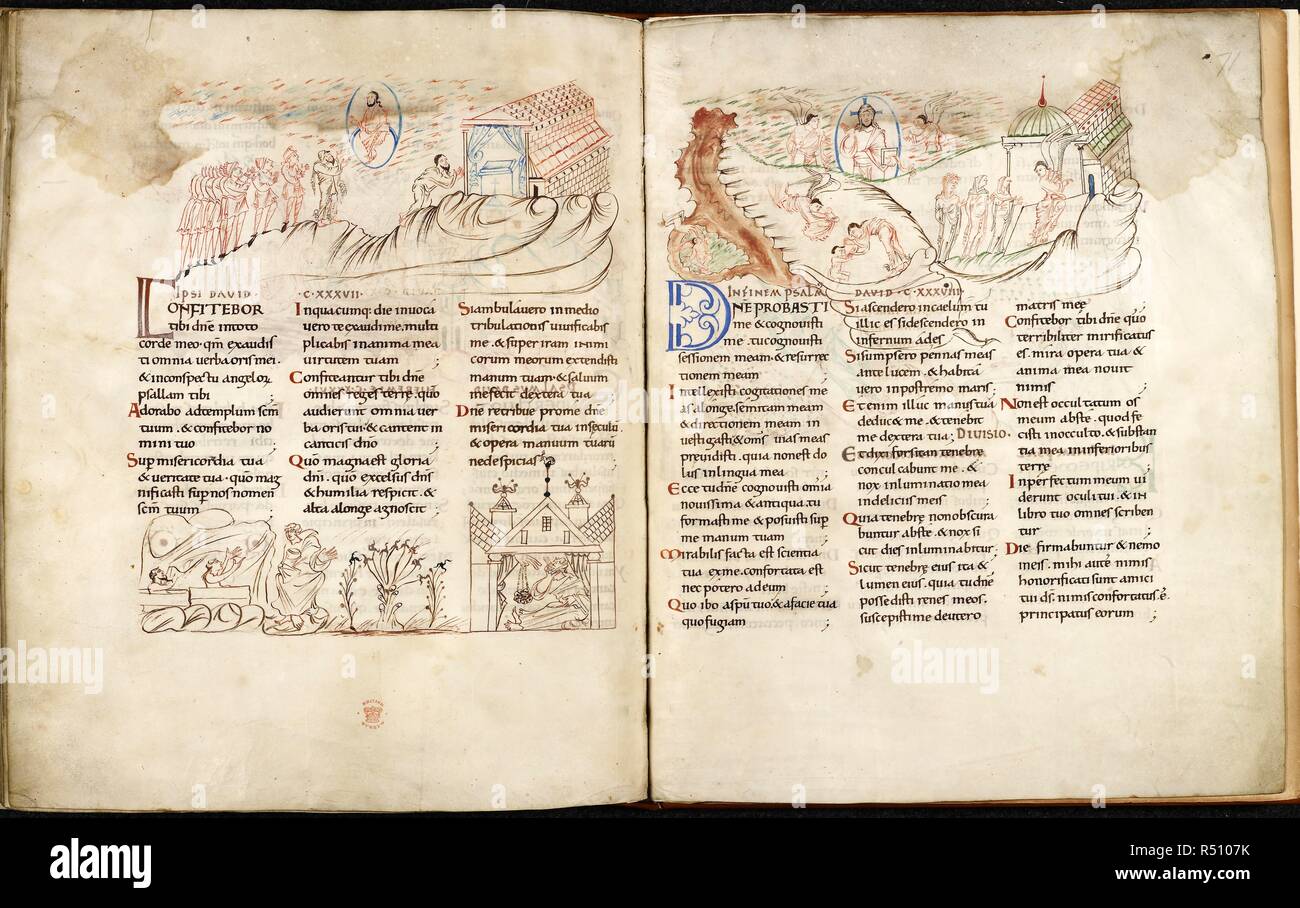 IPSI DAVID · C·XXXVII·
CONFITEBOR
tibi dñe intoto
corde meo· qm̄ exaudis
ti omnia verba oris mei·
& inconspectu angelorꝝ
psallam tibi ;
Adorabo adtemplum scm̄
tuum · & confitebor no
mini tuo ;
Sup̄ misericordia tua
& veritate tua · quō mag
nificasti sup̄ nos nomen
scm̄ tuum ;
In quacumq: die invoca
vero te exaudi me· multi
plicabis inanima mea
virtutem tuam ;
Confiteantur tibi dñe
omnes reges terrę· quō
audierunt omnia ver
ba oris tui· & cantent in
canticis dñō ;
Quō magna est gloria
dñi · quō excelsus dñs
& humilia respicit · &
alta alonge agnoscit ;
Si ambulavero in medio
tribulationis vivificabis
me · & super iram inimi
corum meorum extendisti
manum tuam· & salvum
me fecit dextera tua ;
Dñe retribue pro me dñe
misericordia tua insęculū·
& opera manuum tuarū
ne despicias
71
INFINEM PSALM DAVID · C·XXXVIII·
DÑE PROBASTI
me & cognovisti
me · tu cognovisti
sessionem meam · & resurrec
tionem meam
Intellexisti cogitationes me
as alonge· semitam meam
& directionem meam in
vestigasti· & oms̄ vias meas
previdisti· quia non est do
lus in lingua mea ;
Ecce tu dñe cognovisti omnia
novissima & antiqua· tu
formasti me & posuisti sup̄
me manum tuam ;
Mirabilis facta est scientia
tua ex me· confortata est
nec potero ad eum ;
Quo ibo asp̄u tuo· & afacie tua
quo fugiam ;
Si ascendero in caelum tu
illic es si descendero in
infernum ades
Si sumpsero pennas meas
ante lucem · & habita
vero in postremo maris ;
Etenim illuc manus tua
deduc& me · & tenebit
me dextera tua ; DIVISIO·
Et dixi forsitan tenebrę
conculcabunt me · &
nox inluminatio mea
in deliciis meis ;
Quia tenebrę non obscura
buntur abste · & nox si
cut dies inluminabitur ;
Sicut tenebrę eius ita &
lumen eius· quia tu dñe
possedisti renes meos·
suscepisti me de utero
matris meę ;
Confitebor tibi dñe quō
terribiliter mirificatus
es· mira opera tua &
anima mea novit
nimis ;
Non est occultatum os
meum abste· quod fe
cisti in occulto· & substan
tia mea in inferioribus
terrę ;
Inperfectum meum vi
derunt oculi tui · & in
libro tuo omnes scriben
tur ;
Die firmabuntur & nemo
in eis· mihi autē nimis
honorificati sunt amici
tui d̄s· nimis confortatus ē·
principatus eorum ;
alamy
alamy
alamy
Image ID: R5107K
www.alamy.com